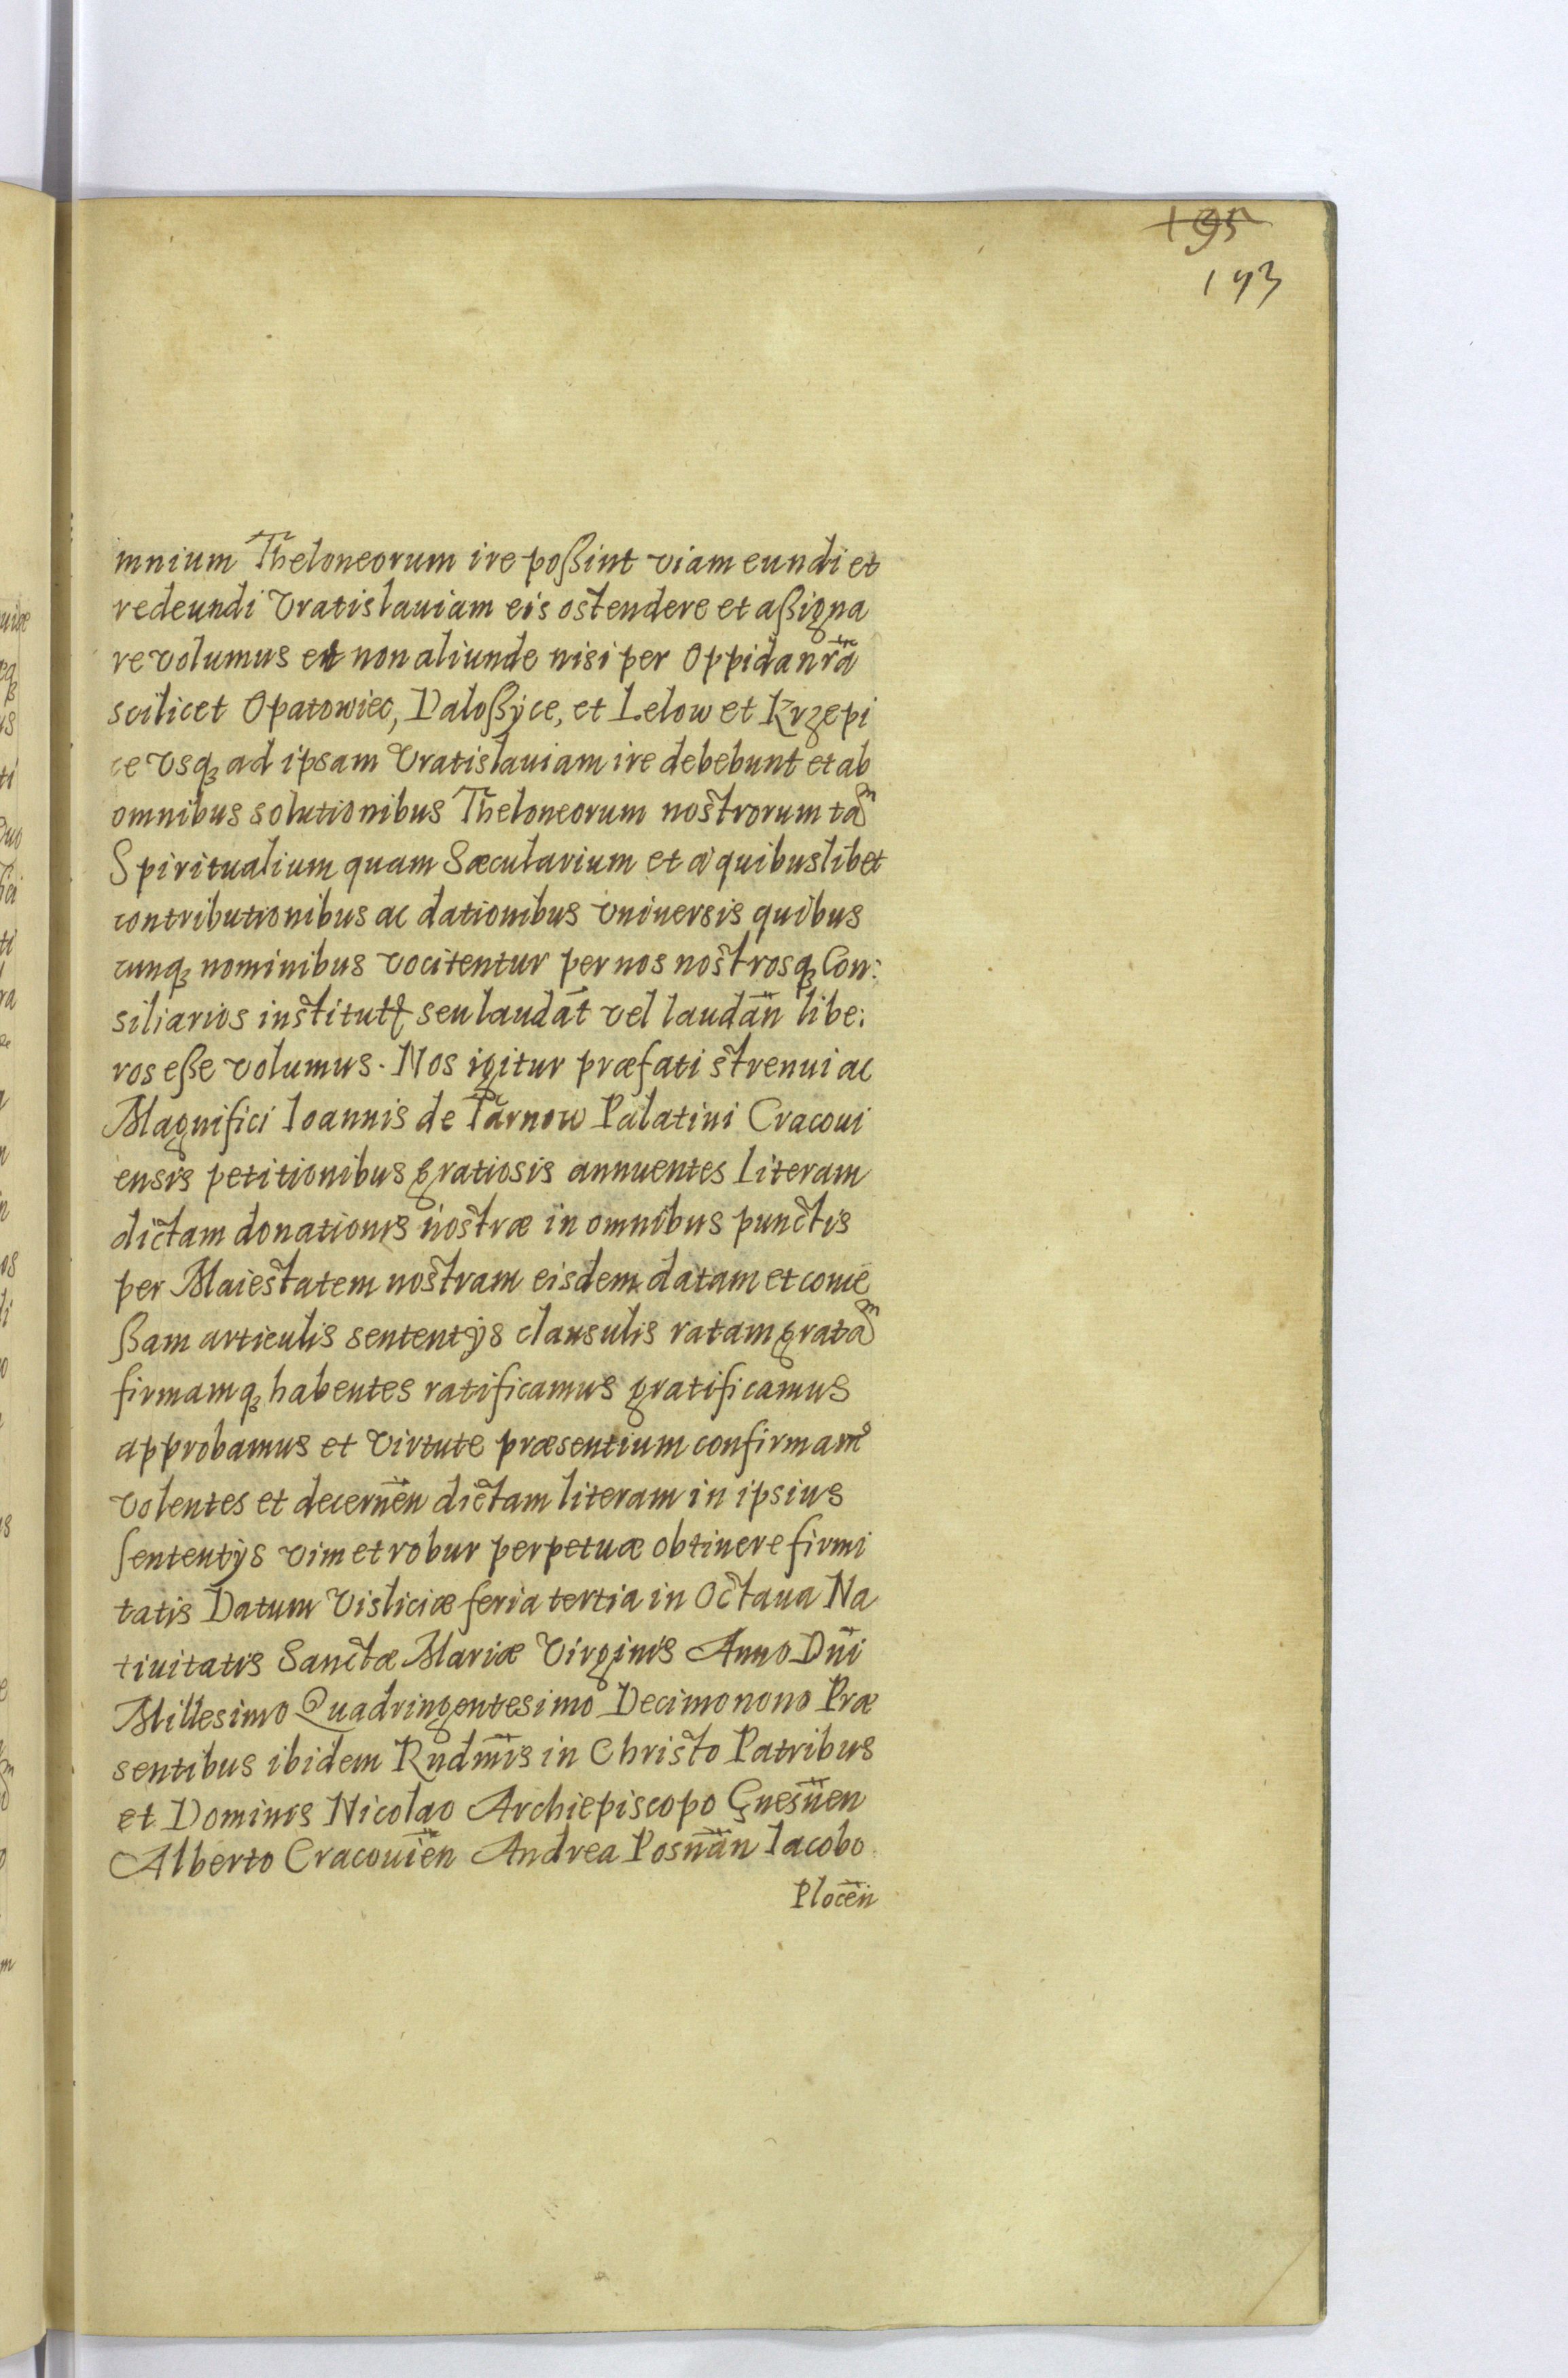 195
193
mnium Theloneorum ire poßint viam eundi et
redeundi Vratislauiam eis ostendere et aßigna
re volumus et non aliunde nisi per Oppida nr̃a
scilicet Opatowiec, Daloßÿce, et Lelow et Krzepi
ce Vsqꝫ ad ipsam Vratislauiam ire debebunt et ab
omnibus solutionibus Theloneorum nostrorum tam
Spiritualium quam Sæcularium et à quibuslibet
contributionibus ac dationibus vniuersis quibus
cunqꝫ nominibus vocitentur per nos nostrosqꝫ Con:
siliarios institutꝭ seu laudat̄ vel laudan̄ libe:
ros eße volumus. Nos igitur præfati strenui ac
Magnifici Ioannis de Tarnow Palatini Cracoui
ensis petitionibus gratiosis annuentes literam
dictam donationis nostræ in omnibus punctis
per Maiestatem nostram eisdem datam et conce
ßam articulis sententÿs clausulis ratam gratam
firmamqꝫ habentes ratificamus gratificamus
approbamus et virtute præsentium confirmamꝰ
Volentes et decernen̄ dictam literam in ipsius
sententÿs vim et robur perpetuæ obtinere firmi
tatis Datum Visliciæ feria tertia in Octaua Na
tiuitatis Sanctæ Mariæ Virginis Anno Dn̄i
Millesimo Quadringentesimo Decimonono Præ
sentibus ibidem Rndm̄is in Christo Patribus
et Dominis Nicolao Archiepiscopo Gnesnen̄
Alberto Cracouien̄ Andrea Posnan̄ Iacobo
Plocen̄